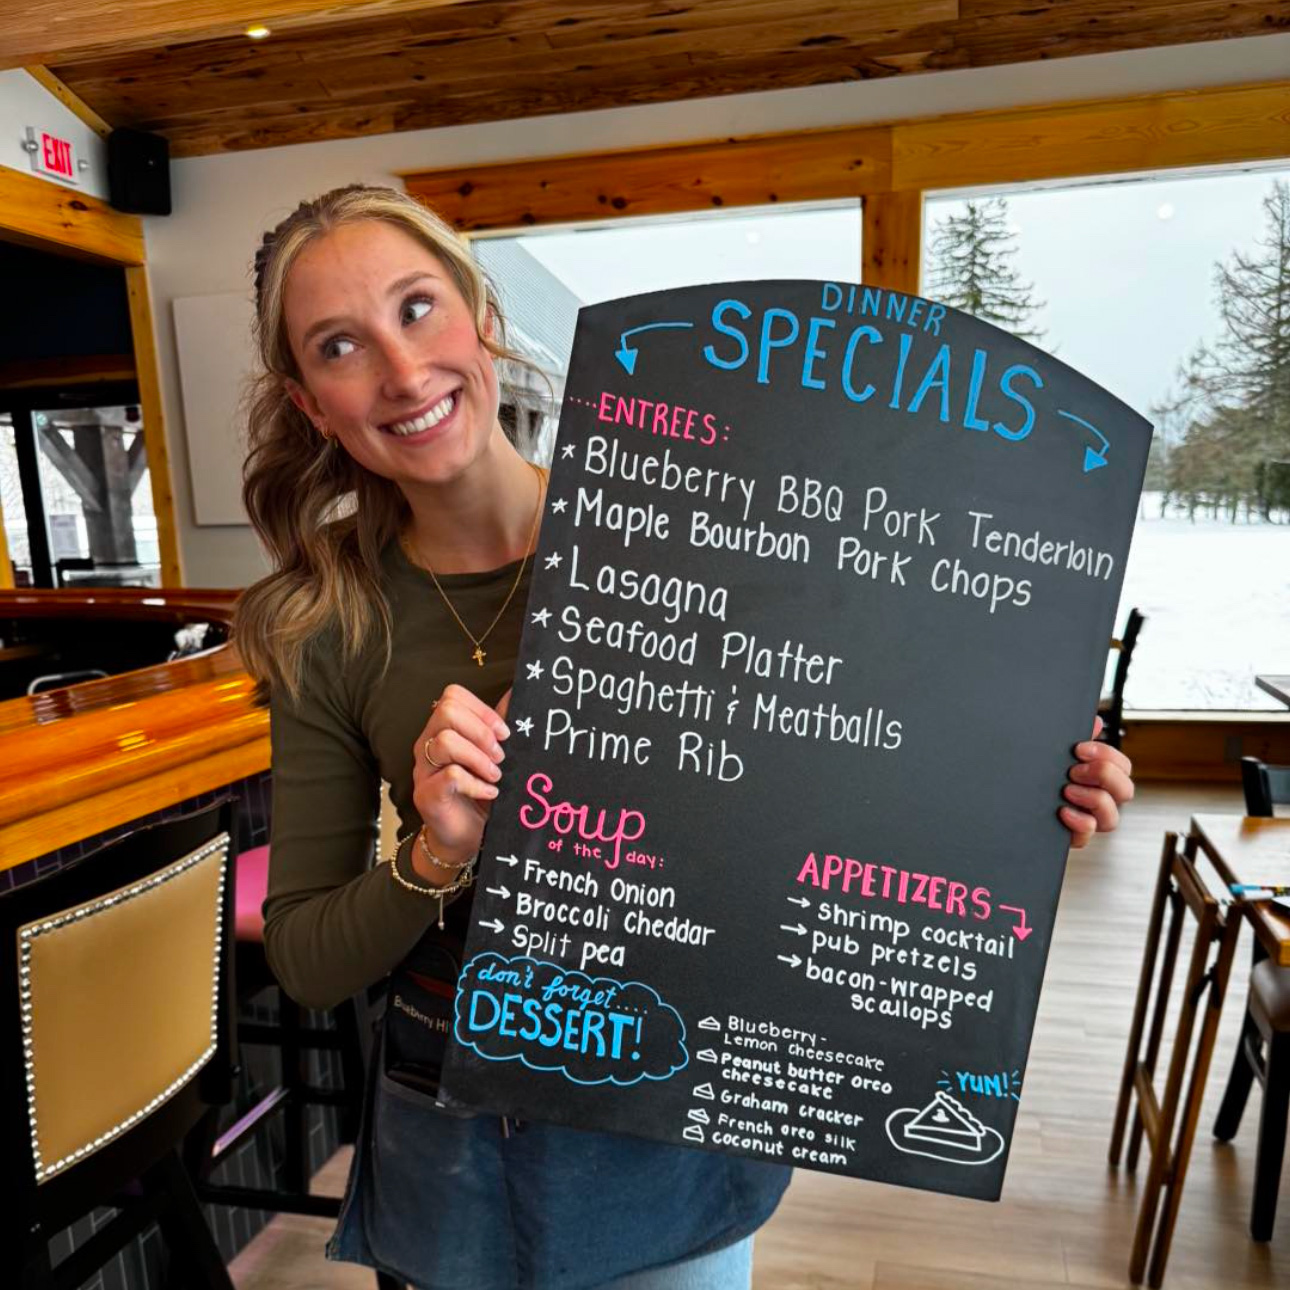 EXIT
DINNER
SPECIALS
....ENTREES:
* Blueberry BBQ Pork Tenderloin
* Maple Bourbon Pork Chops
* Lasagna
* Seafood Platter
* Spaghetti & Meatballs
* Prime Rib
Soup
of the day:
→ French Onion
→ Broccoli Cheddar
→ Split pea
APPETIZERS
→ shrimp cocktail
→ pub pretzels
→ bacon-wrapped
scallops
don't forget....
DESSERT!
Blueberry-
Lemon cheesecake
Peanut butter oreo
cheesecake
Graham cracker
French oreo silk
coconut cream
YUM!